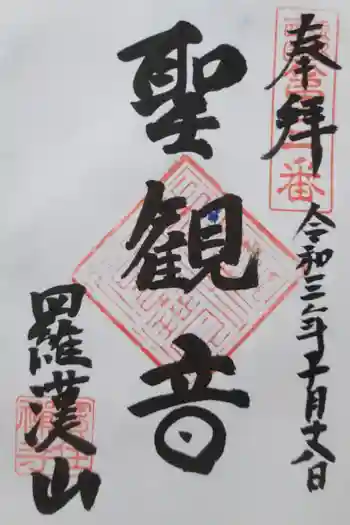 奉拝
令和三年十月十八日
聖観音
羅漢山